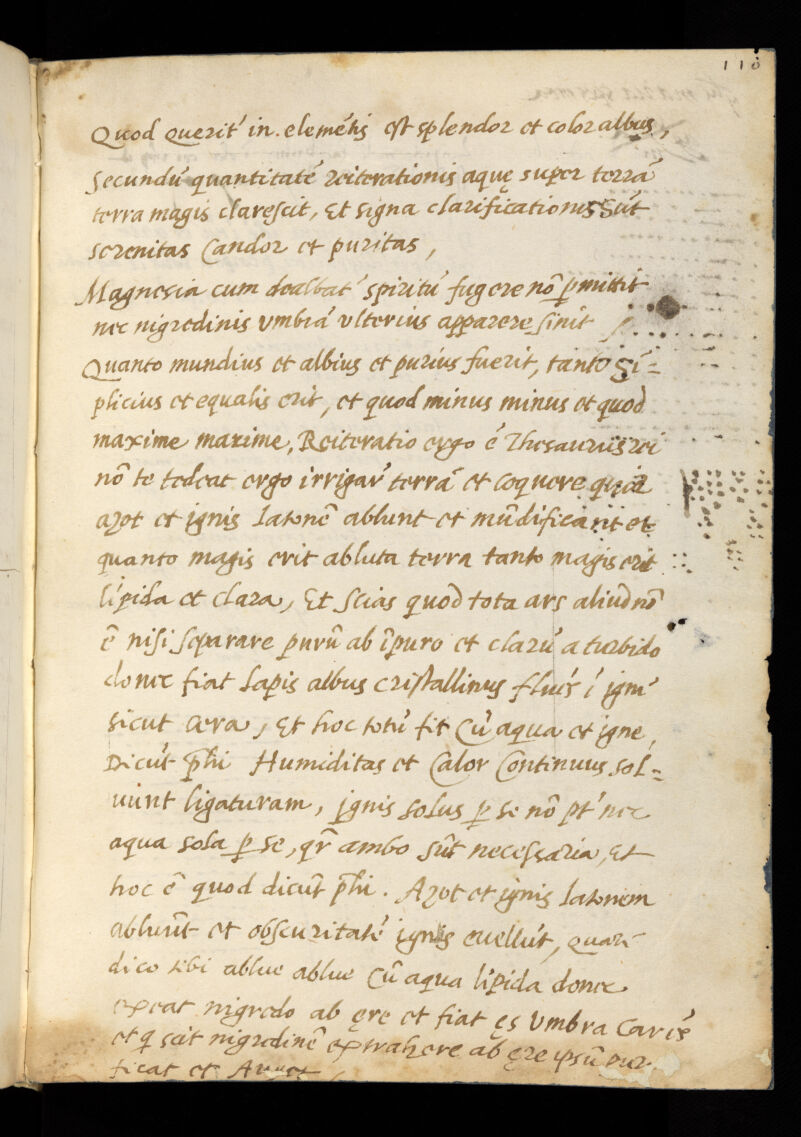 110
Quod Querit́ in. elemẽtis est splendor et color albus,
Secundú quantitatẽ reiterationis aquę super terrã
terra magis clarescit, Et signa clarificationis sũt
serenitas Candor et puritas,
Magnesia cum dealbat́ spiritú fugere nõ ꝑmittit
nec nigredinis vmbrã vlterius apparere sinit
Quanto mundius et albius et purius fuerit, tanto sĩ=
plicius et equalis erit, et quod minus minus et quod
maxime maxime, Reiteratio ergo ẽ Thesaurus rei
nõ te tedeat ergo irrigaŕ terrã et coquere quia
azot et ignis latonẽ ablunt et mũdificant et
quanto magis erit abluta terra tanto magis erit
lipida et clara, Et scias quod tota ars aliud nõ
ẽ nisi separare purũ ab ĩpuro et clarú a turbido
donec fiat lapis albus cristallinus ĩ igne
sicut cera, Et hoc totú fit Cũ aqua et igne,
Dicút pĥi Humiditas et Calor Continuus sol=
uunt ligaturam, ignis solus ꝑ se nõ pt́ nec
aqua sola ꝑ se, qr̃ ambo sũt necessaria, Et
hoc ẽ quod dicũt pĥi. Azot et ignis latonem
ablunt et obscuritatẽ ignis euellút, quarẽ
dico tibi ablue ablue Cũ aqua lipida donec
exeat nigredo ab ęre et fiat ęs Vmbra Carẽs
et q scit nigredinẽ extrahere ab ęre ipsũ pur
ficat et